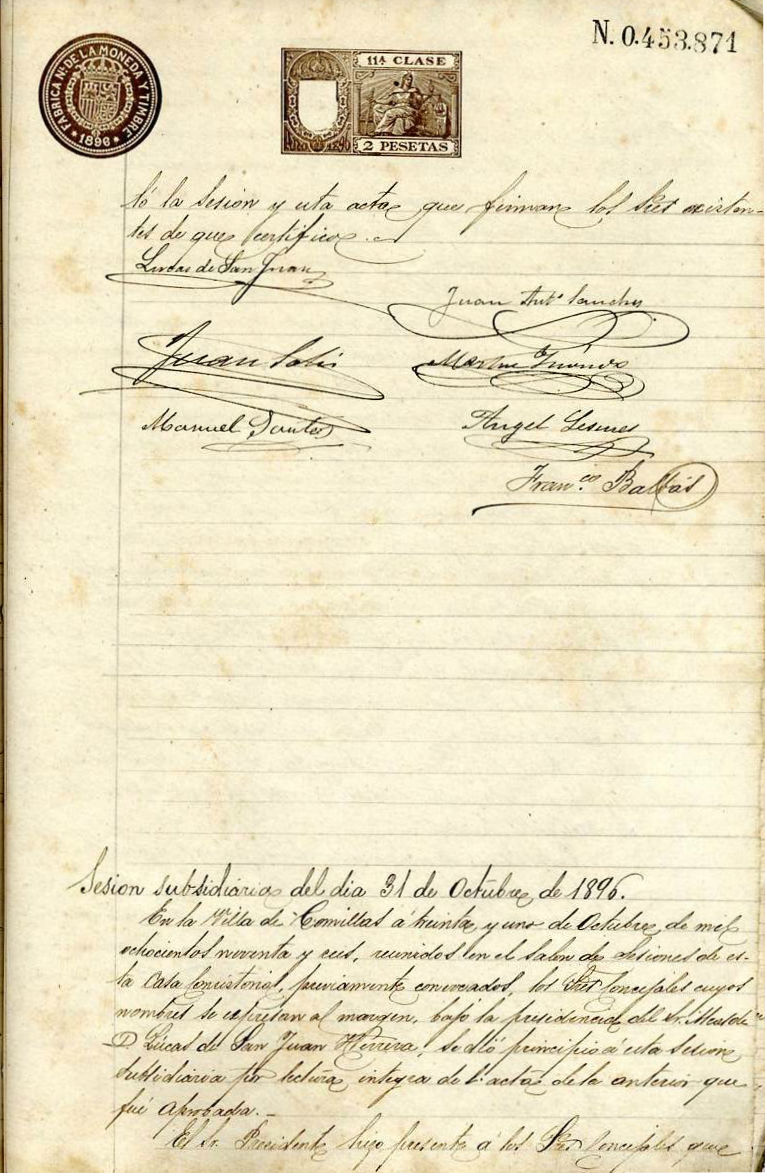 N. 0.453.871
FABRICA Nal DE LA MONEDA Y TIMBRE
* 1896 *
11ª CLASE
2 PESETAS
tó la sesion y esta acta que firman los Sres asisten-
tes de que certifico.
Lucas de San Juan
Juan Anto Sanchez
Juan Solis
Martin
Manuel Santos
Angel
Franco Balbás
Sesion subsidiaria del dia 31 de Octubre de 1896.
En la Villa de Comillas á treinta y uno de Octubre de mil
ochocientos noventa y seis, reunidos en el salon de sesiones de es-
ta Casa Consistorial, previamente convocados, los Sres Concejales cuyos
nombres se espresan al margen, bajo la presidencia del Sr. Alcalde
D. Lúcas de San Juan Herrera, se dió principio á esta sesion
subsidiaria por lectura integra del acta de la anterior que
fué aprobada.-
El Sr. Presidente hizo presente á los Sres Concejales que